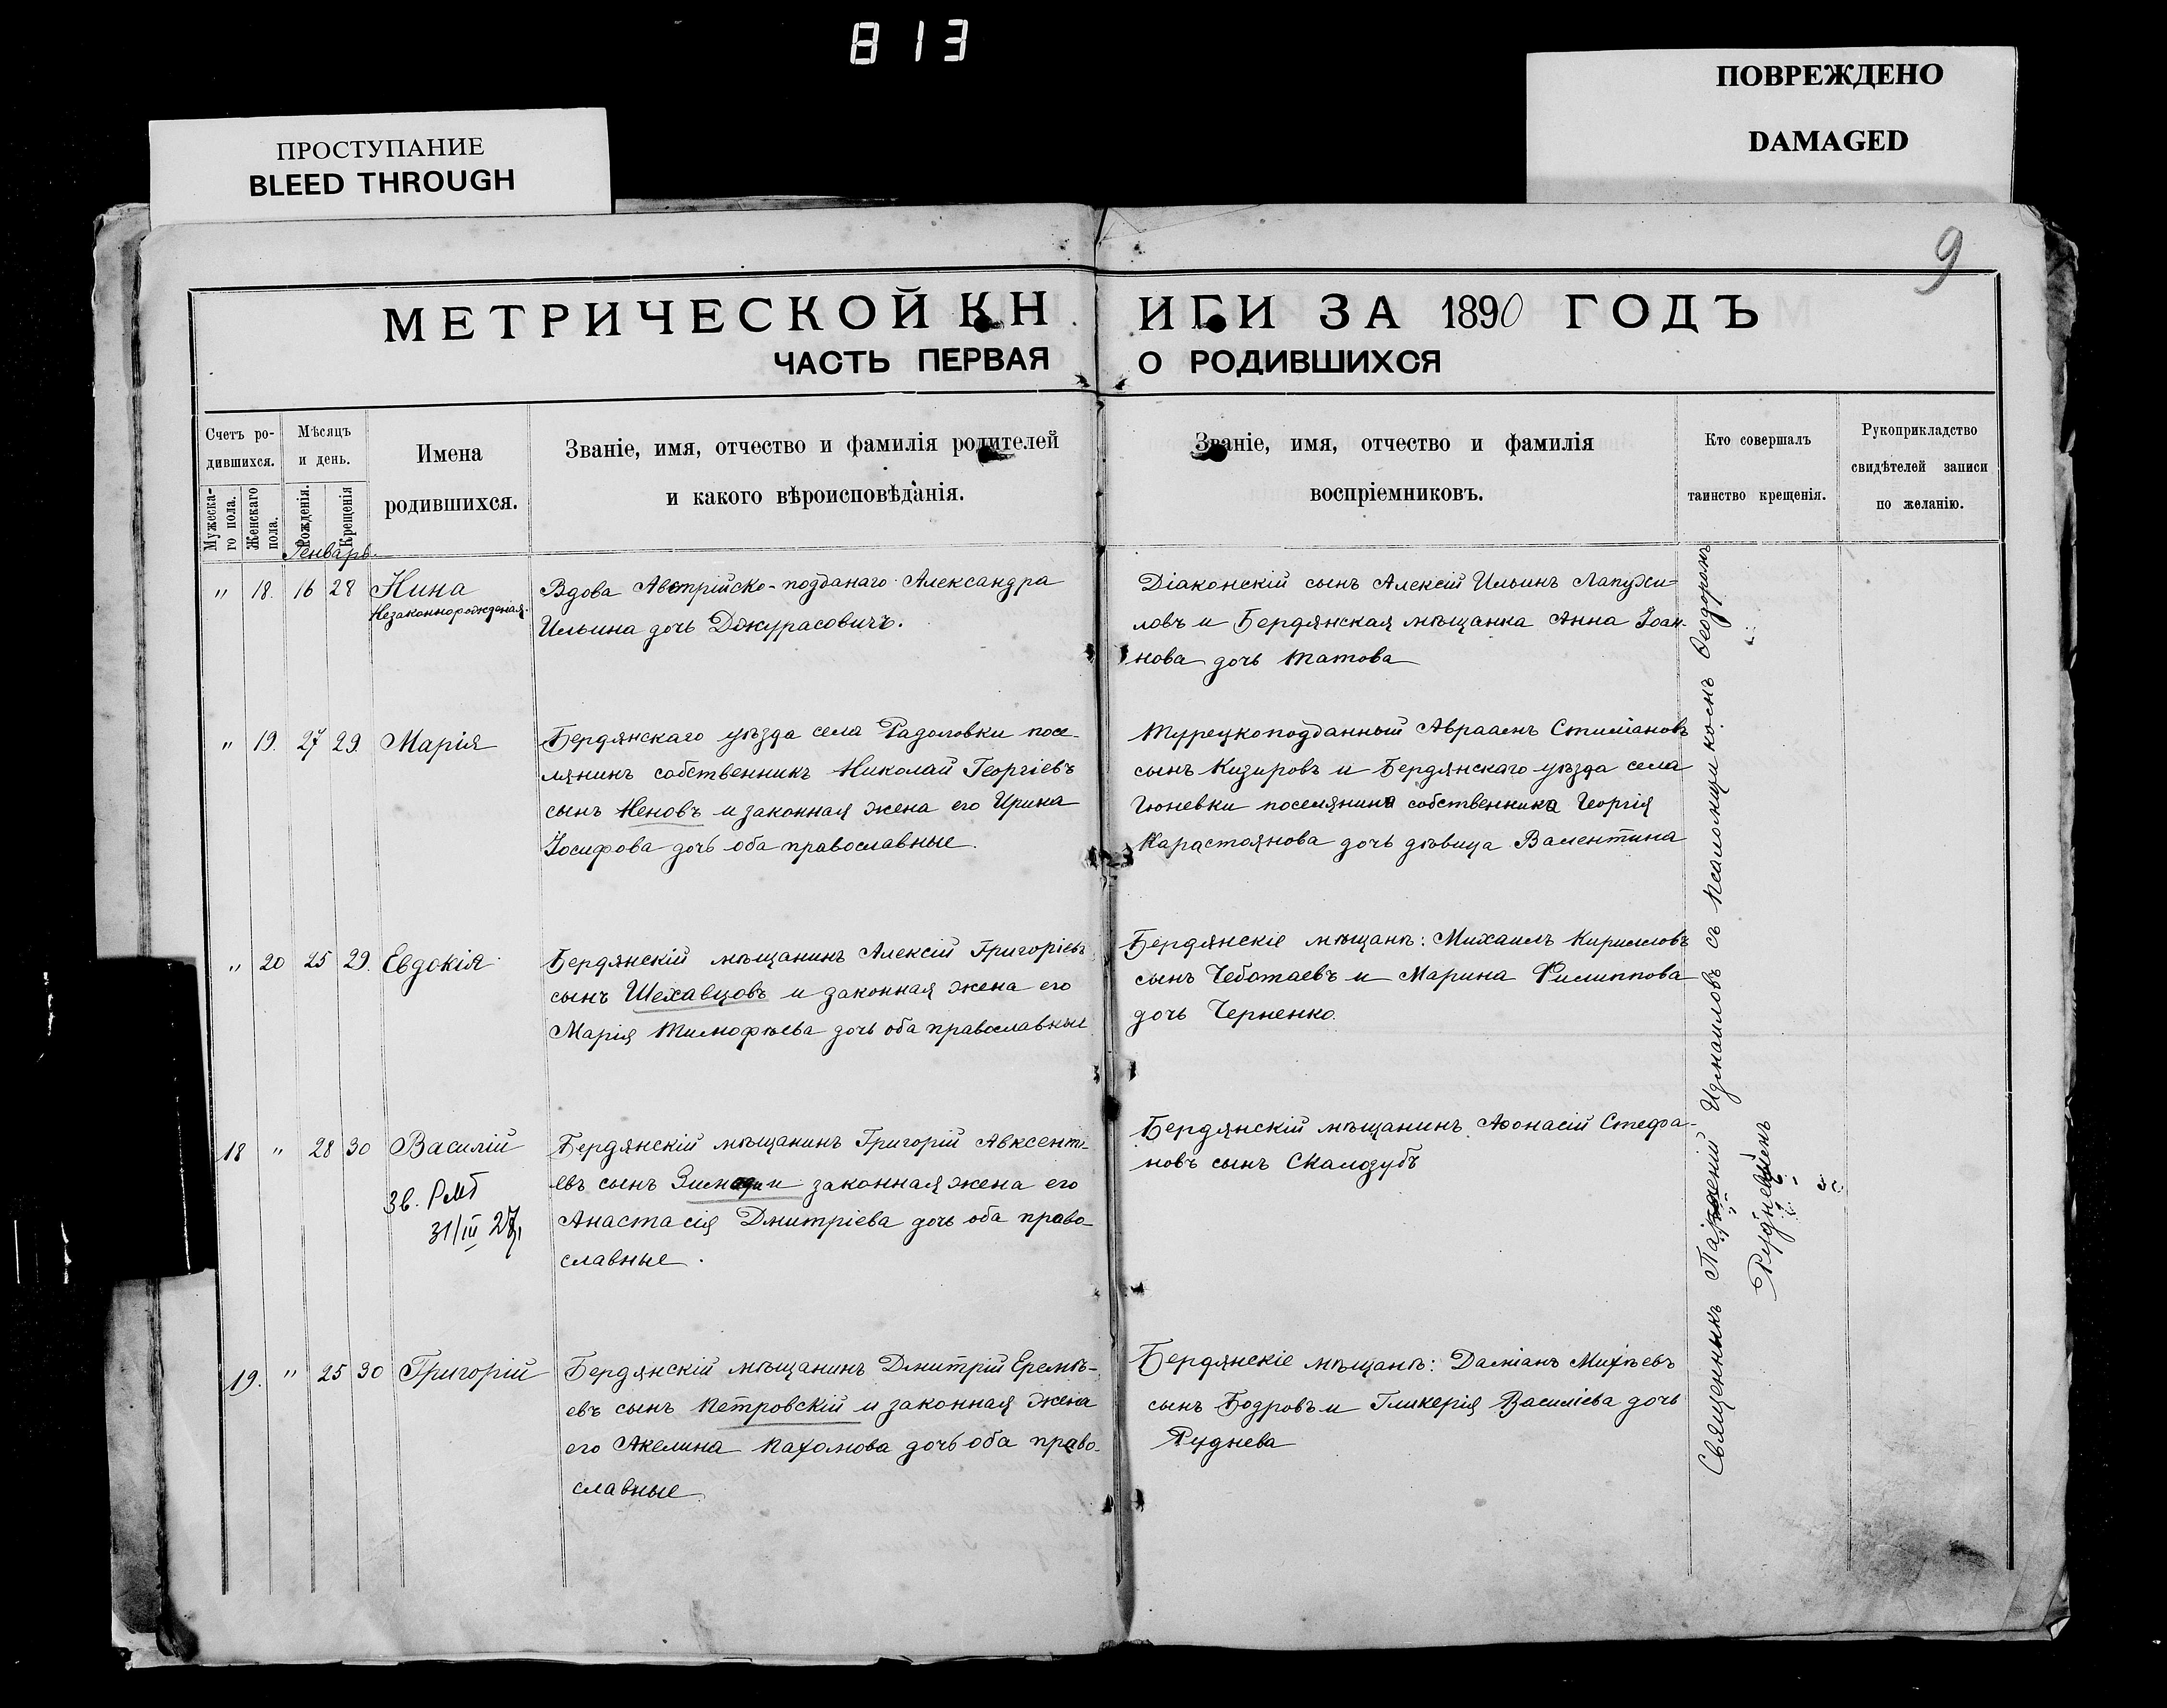 813
ПРОСТУПАНИЕ
BLEED THROUGH
ПОВРЕЖДЕНО
DAMAGED
9
МЕТРИЧЕСКОЙ КНИГИ ЗА 1890 ГОДЪ
ЧАСТЬ ПЕРВАЯ О РОДИВШИХСЯ
Счетъ ро-
дившихся.
Мужеска-
го пола.
Женскаго
пола.
Мѣсяцъ
и день.
Рожденія.
Крещенія
Имена
родившихся.
Званіе, имя, отчество и фамилія родителей
и какого вѣроисповѣданія.
Званіе, имя, отчество и фамилія
воспріемниковъ.
Кто совершалъ
таинство крещенія.
Рукоприкладство
свидѣтелей записи
по желанію.
Генварь
" 18. 16 28 Нина
Незаконнорожденая.
Вдова Австрійско-подданаго Александра
Ильина дочь Джурасовичъ.
Діаконскій сынъ Алексій Ильинъ Лапужи-
ловъ и Бердянская мѣщанка Анна Іоан-
нова дочь Татова
" 19. 27 29. Марія
Бердянскаго уѣзда села Радоловки посе-
лянинъ собственникъ Николай Георгіевъ
сынъ Неновъ и законная жена его Ирина
Іосифова дочь оба православные.
Турецкоподданный Авраамъ Стиліановъ
сынъ Кизировъ и Бердянскаго уѣзда села
Гюневки поселянина собственника Георгія
Карастоянова дочь дѣвица Валентина
" 20 25 29. Евдокія
Бердянскій мѣщанинъ Алексій Григоріевъ
сынъ Шехавцовъ и законная жена его
Марія Тимофѣева дочь оба православные
Бердянскіе мѣщанѣ: Михаилъ Кирилловъ
сынъ Чеботаевъ и Марина Филиппова
дочь Черненко.
18 " 28 30 Василій
Зв. РМТ
31/III 27
Бердянскій мѣщанинъ Григорій Авксенті-
евъ сынъ и законная жена его
Анастасія Дмитріева дочь оба право-
славные.
Бердянскій мѣщанинъ Аѳонасій Стефа-
новъ сынъ Скалозубъ
19. " 25 30 Григорій
Бердянскій мѣщанинъ Дмитрій Еремѣ-
евъ сынъ Петровскій и законная жена
его Акелина Пахомова дочь оба право-
славные
Бердянскіе мѣщанѣ: Даміанъ Михѣевъ
сынъ Бодровъ и Гликерія Василіева дочь
Руднева
Священникъ Парѳеній Измаиловъ съ псаломщикомъ Ѳеодоромъ
Рудневымъ